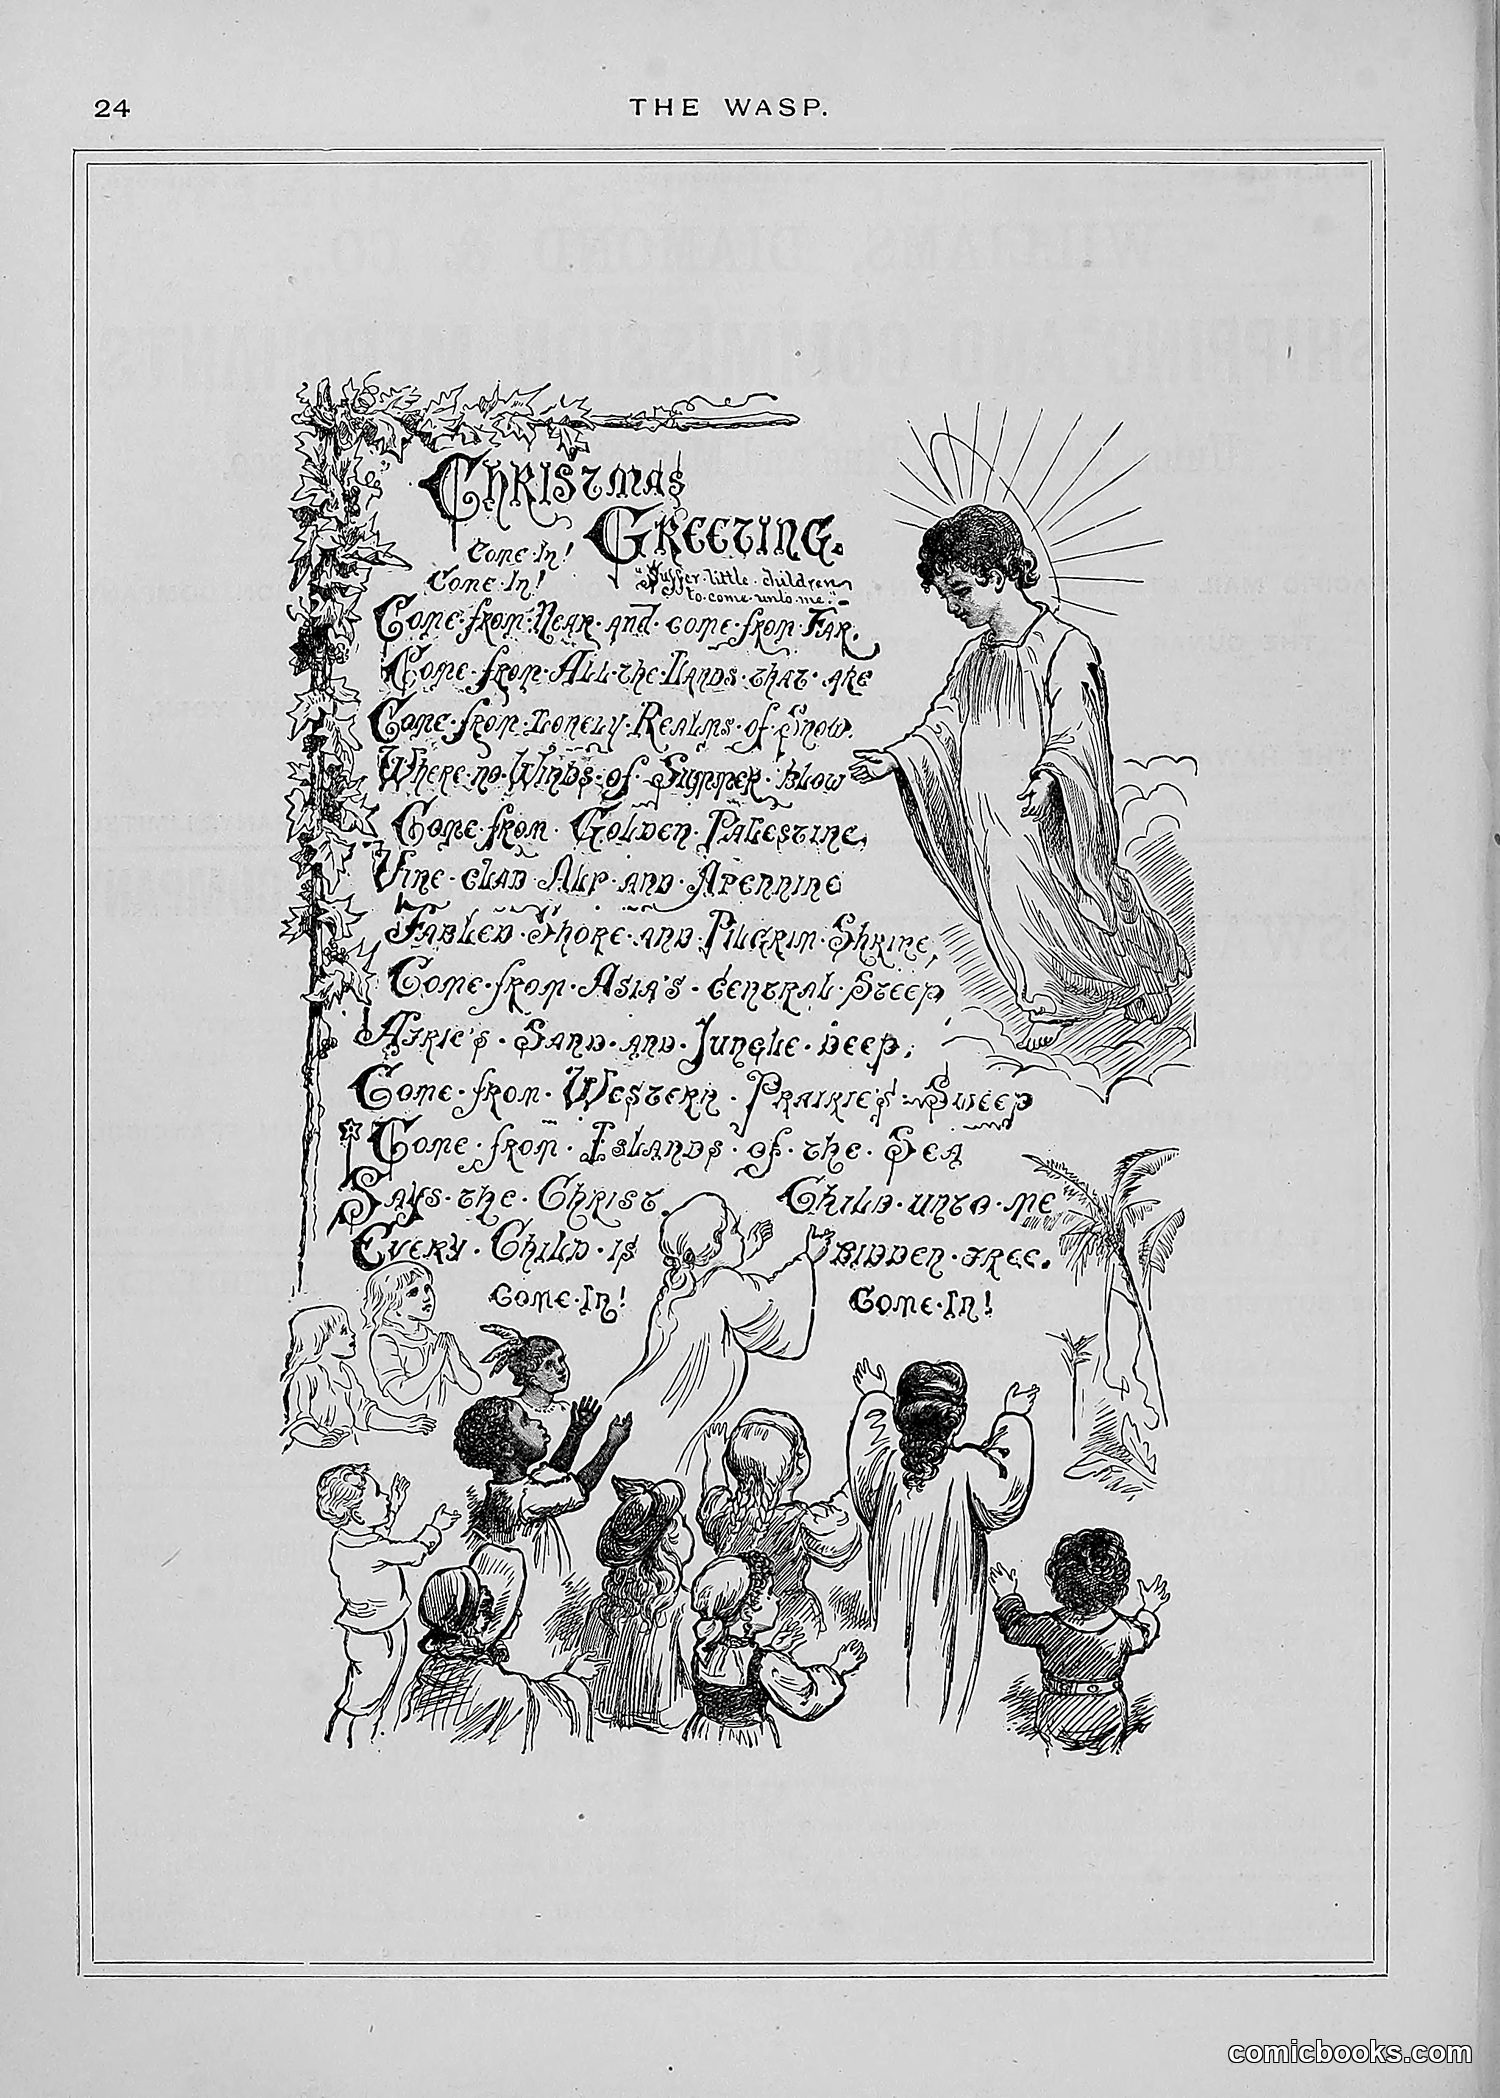 24
THE WASP.
CHRISTMAS
GREETING.
Come In!
Come In!
"Suffer little children
to come unto me."
Come from Near and come from Far.
Come from All the Lands that are
Come from Lonely Realms of Snow.
Where no Winds of Summer blow
Come from Golden Palestine,
Vine clad Alp and Apennine
Fabled Shore and Pilgrim Shrine,
Come from Asia's central Steep,
Afric's Sand and Jungle deep;
Come from Western Prairie's Sweep
Come from Islands of the Sea
Says the Christ Child unto me
Every Child is bidden free.
Come In! Come In!
comicbooks.com